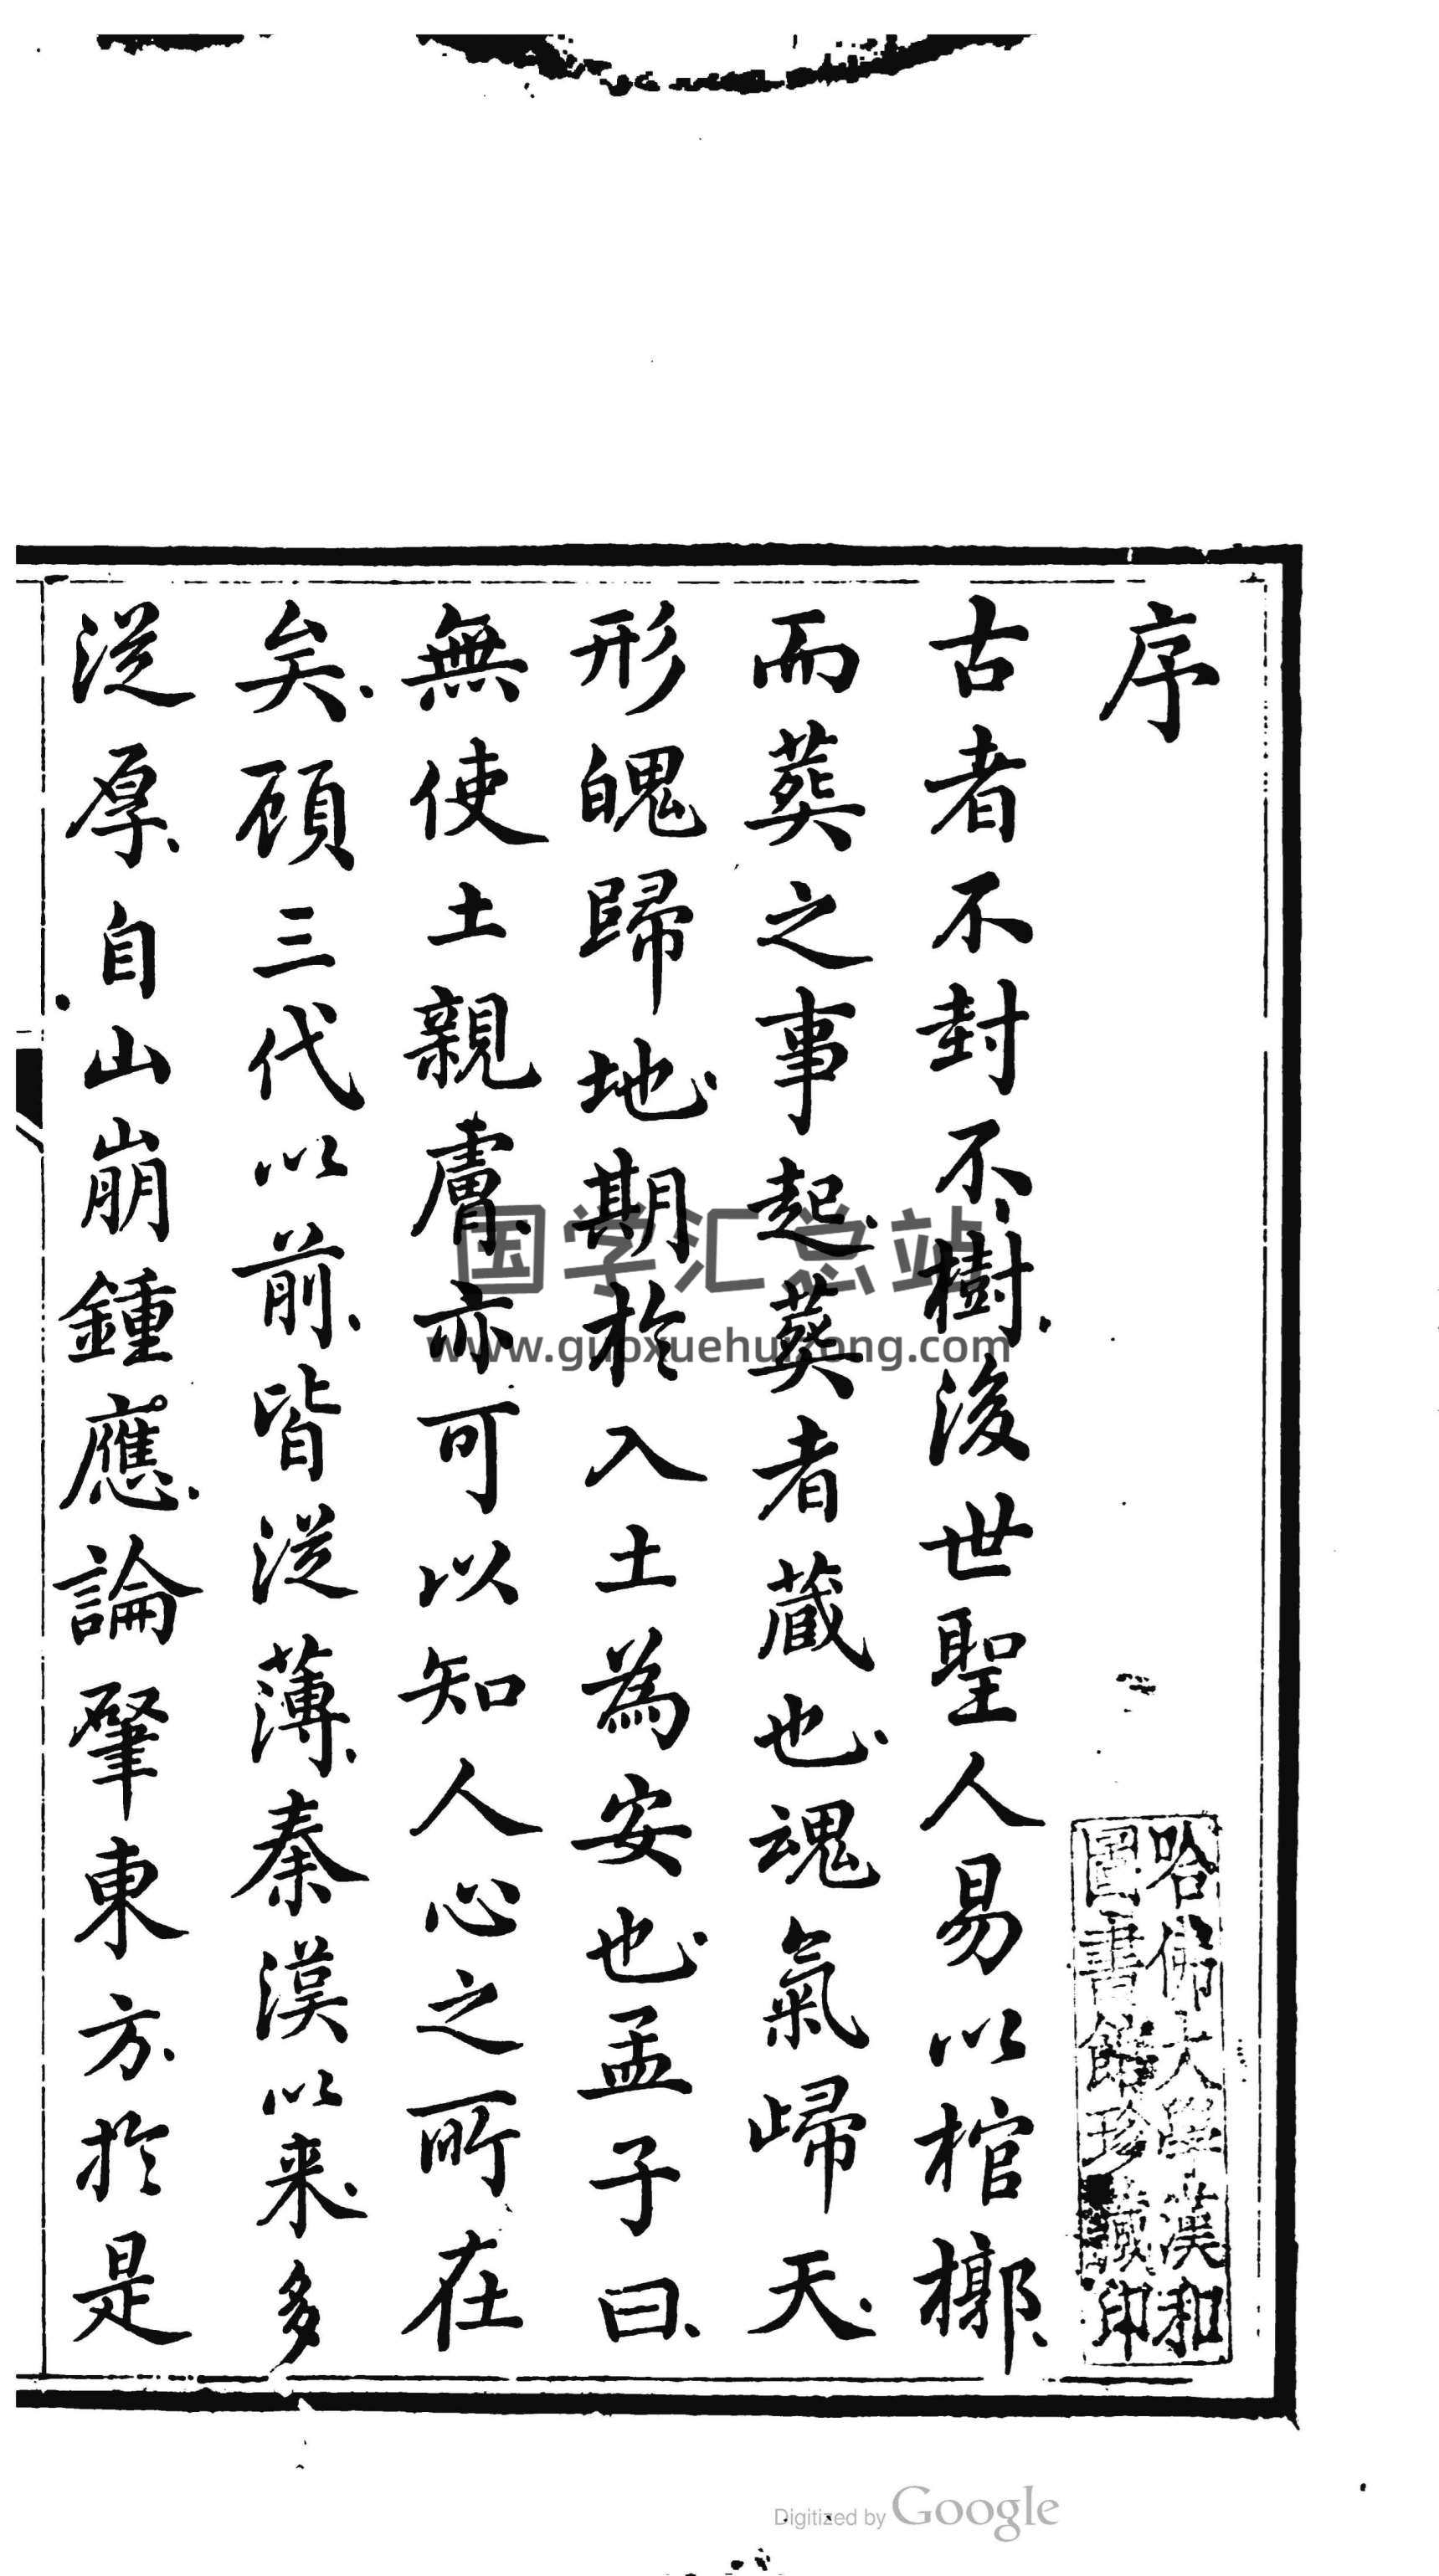 序
古者不封不樹後世聖人易以棺槨
而葬之事起葬者蔵也魂氣歸天
形魄歸地期於入土為安也孟子曰
無使土親膚亦可以知人心之所在
矣顧三代以前皆從薄秦漢以来多
從厚自山崩鍾應論肇東方於是
哈佛大學漢和
圖書館珍藏印
国学汇总站
www.guoxuehuizong.com
Digitized by Google